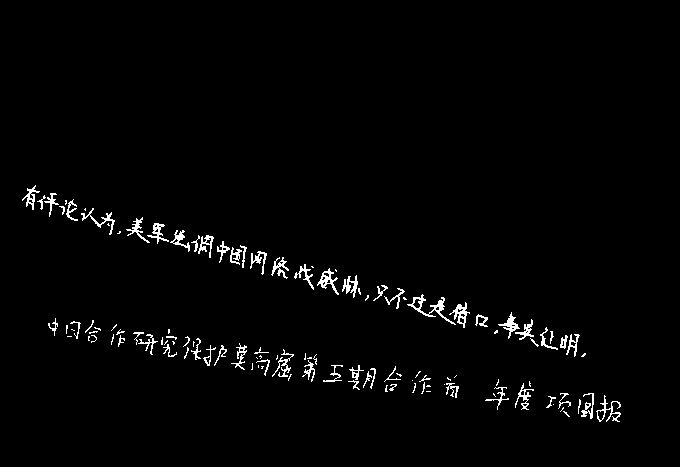 有评论认为,美军强调中国网络战威胁,只不过是借口,事实证明,
中国合作研究保护莫高窟第五期合作首 年度项国报